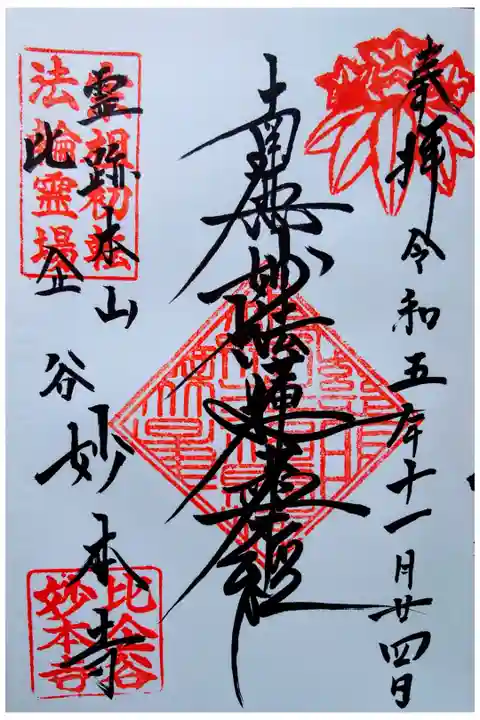 奉拝
令和五年十一月廿四日
南無妙法蓮華経
霊跡本山
比企谷妙本寺
宗祖初転
法輪霊場
比企谷
妙本寺